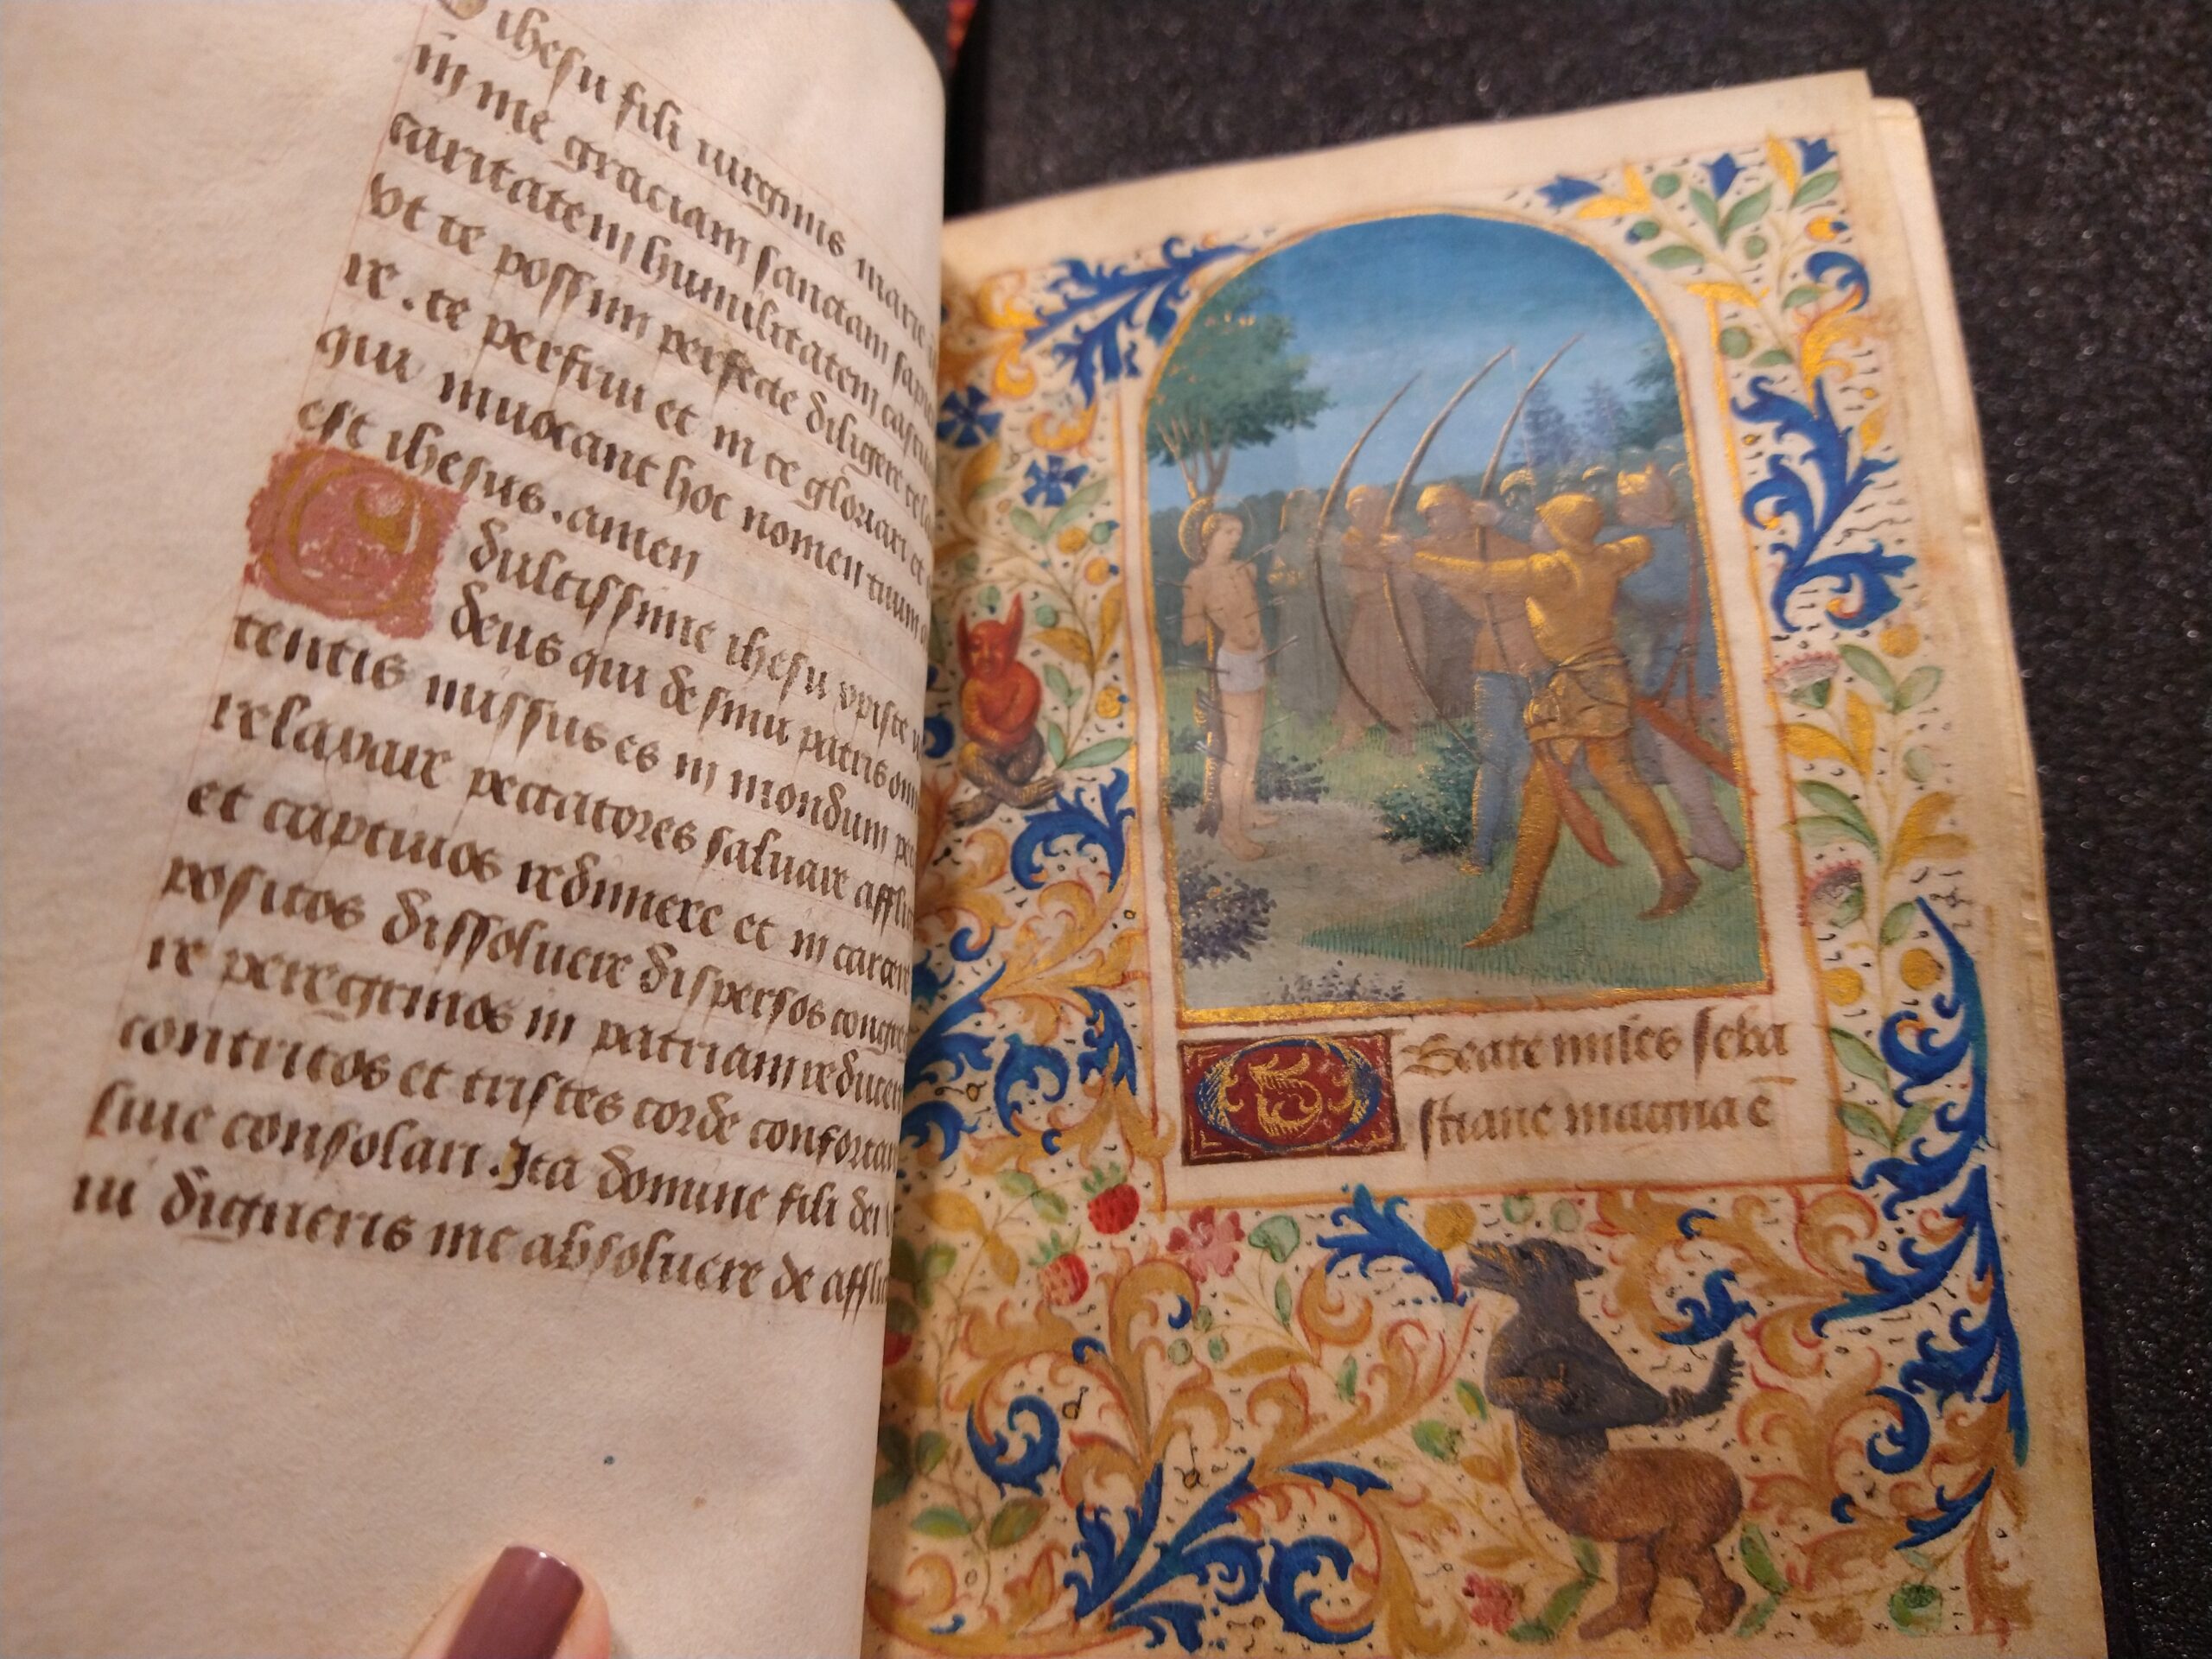 ihesu fili uirginis marie
in me graciam sanctam sapi
caritatem humilitatem castita
vt te possim perfecte diligere te la
re. te perfrui et in te gloriari et
qui inuocant hoc nomen tuum
est ihesus. amen
O dulcissime ihesu xpiste
deus qui de sinu patris omni
tentis missus es in mondum pec
relaxare peccatores saluare afflic
et captiuos redimere et in carcere
positos dissoluere dispersos congre
re peregrinos in patriam reducere
contritos et tristes corde confortare
siue consolari. Ita domine fili dei
ui digneris me absoluere de afflic
O Beate miles seba
stiane magna ē